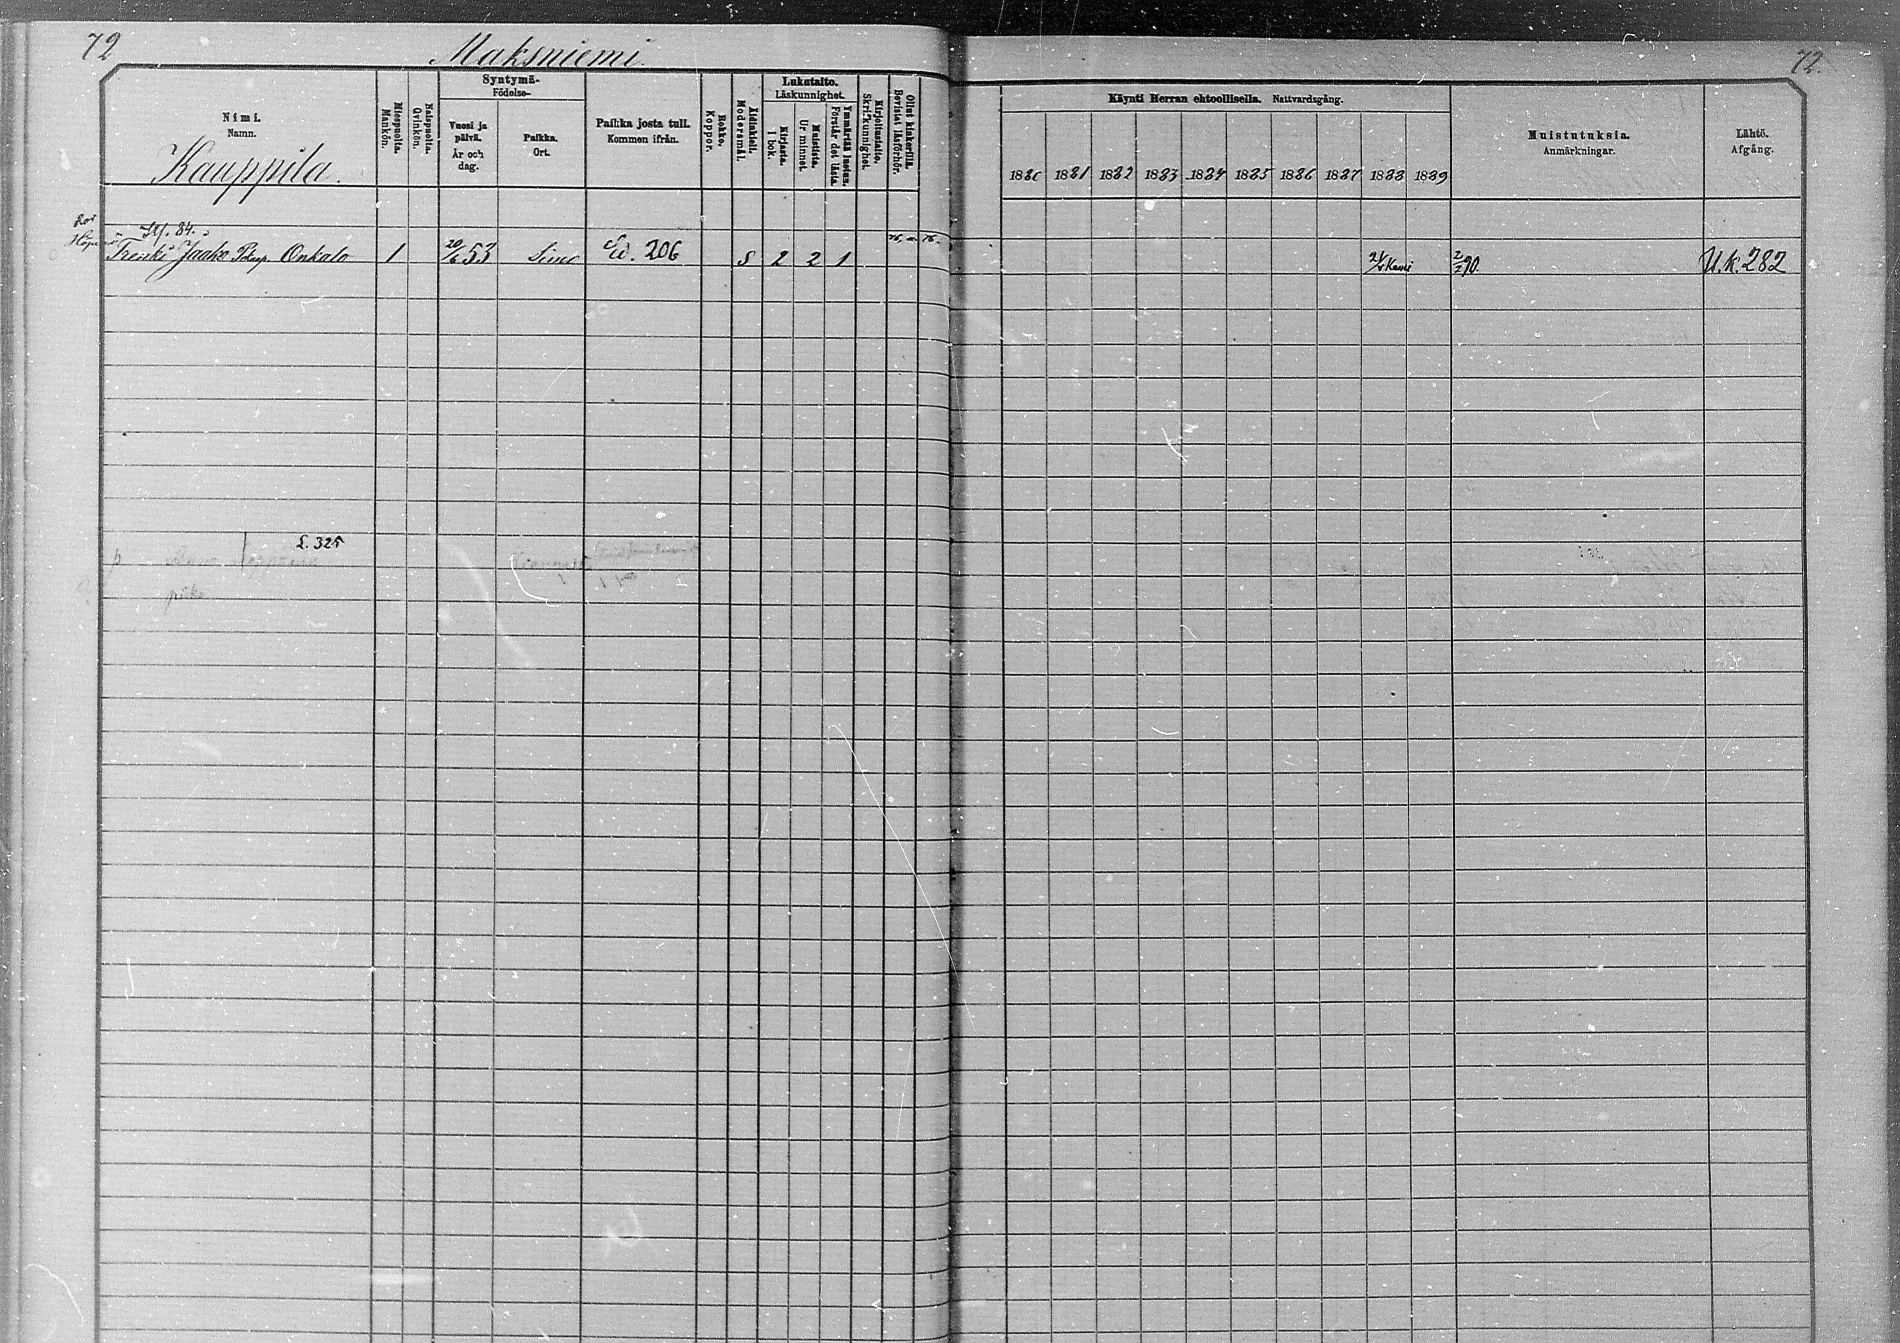 72
Maksniemi.
72.
Nimi.
Namn.
Kauppila.
Miespuolia.
Mankön.
Vaispuolia.
Qvinkön.
Syntymä-
Födelse-
Vuosi ja
päivä.
År och
dag.
Paikka.
Ort.
Paikka josta tull.
Kommen ifrån.
Rokko.
Koppor.
Äidinkieli.
Modersmål.
Lukutaito.
Läskunnighet.
Kirjasta.
I bok.
Muistista.
Ur minnet.
Ymmärtää luetun.
Förstår det lästa.
Kirjoitustaito.
Skrifkunnighet.
Ollut kinkerillä.
Bevistat läsförhör.
Käynti Herran ehtoollisella. Nattvardsgång.
1880 1881 1882 1883 1884 1885 1886 1887 1888 1889
Muistutuksia.
Anmärkningar.
Lähtö.
Afgång.
84.
Jaako Onkalo 1 20/6 53 Simo Ed. 206 S 2 2 1 Kemi 2/2 90. U.k. 282
L. 325